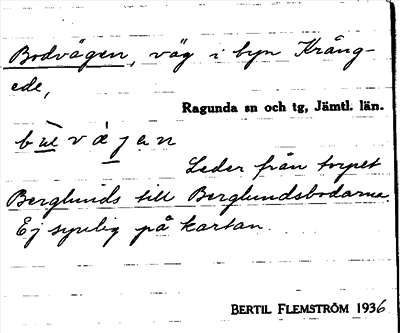 Bodvägen, väg i byn Krång-
ede,
Ragunda sn och tg, Jämtl. län.
Leder från torpet
Berglunds till Berglundsbodarna.
Ej synlig på kartan.
BERTIL FLEMSTRÖM 1936